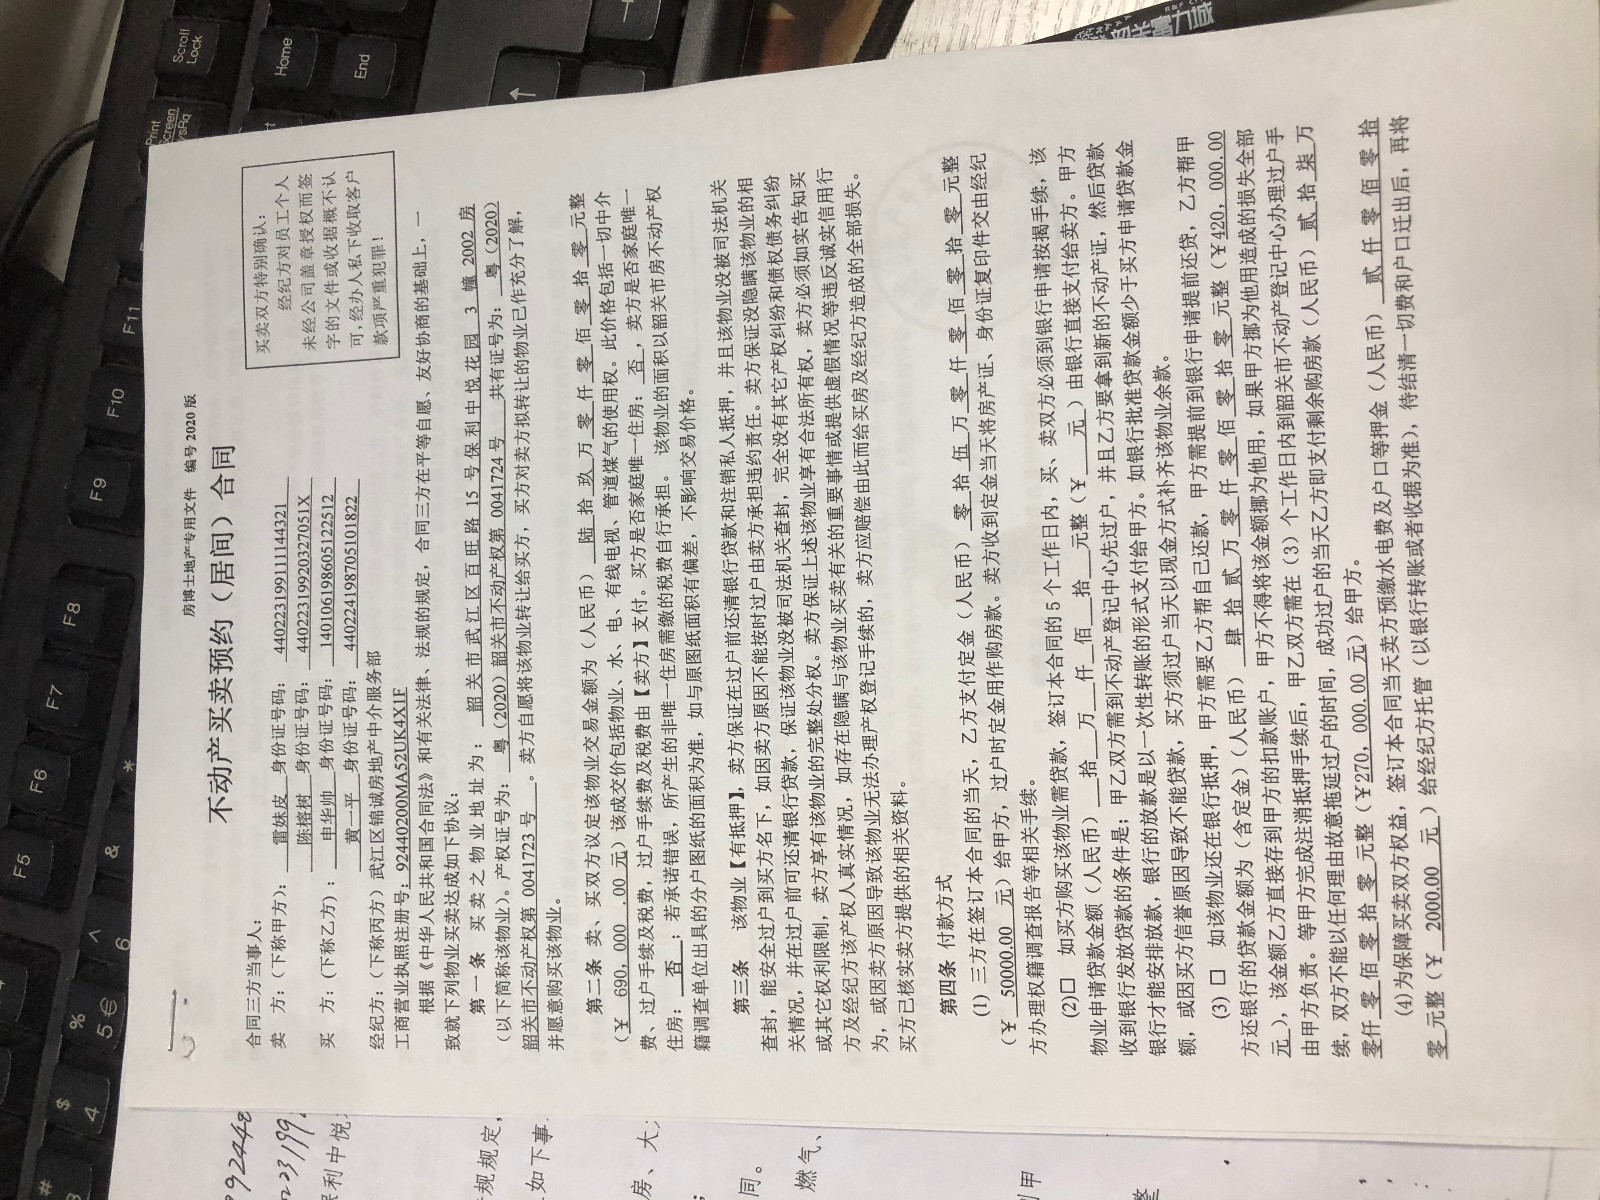 房博士地产专用文件 编号 2020 版
不动产买卖预约（居间）合同
买卖双方特别确认：
经纪方对员工个人
未经公司盖章授权而签
字的文件或收据概不认
可，经办人私下收取客户
款项严重犯罪！
合同三方当事人：
卖 方：（下称甲方）： 雷妹皮 身份证号码： 440223199111144321
陈榕树 身份证号码： 44022319920327051X
买 方：（下称乙方）： 申华帅 身份证号码： 140106198605122512
黄一平 身份证号码： 440224198705101822
经纪方：（下称丙方）武江区锦诚房地产中介服务部
工商营业执照注册号：92440200MA52UK4X1F
根据《中华人民共和国合同法》和有关法律、法规的规定，合同三方在平等自愿、友好协商的基础上，一
致就下列物业买卖达成如下协议：
第一条 买卖之物业地址为： 韶关市武江区百旺路 15 号保利中悦花园 3 幢 2002 房
（以下简称该物业）。产权证号为： 粤（2020）韶关市不动产权第 0041724 号 共有证号为： 粤（2020）
韶关市不动产权第 0041723 号 。卖方自愿将该物业转让给买方，买方对卖方拟转让的物业已作充分了解，
并愿意购买该物业。
第二条 卖、买双方议定该物业交易金额为（人民币） 陆 拾 玖 万 零 仟 零 佰 零 拾 零 元整
（￥ 690，000 .00 元）该成交价包括物业、水、电、有线电视、管道煤气的使用权。此价格包括一切中介
费、过户手续及税费，过户手续费及税费由【卖方】支付。买方是否家庭唯一住房： 否 ，卖方是否家庭唯一
住房： 否 ；若承诺错误，所产生的非唯一住房需缴的税费自行承担。 该物业的面积以韶关市房不动产权
籍调查单位出具的分户图纸的面积为准，如与原图纸面积有偏差，不影响交易价格。
第三条 该物业【有抵押】，卖方保证在过户前还清银行贷款和注销私人抵押，并且该物业没被司法机关
查封，能安全过户到买方名下，如因卖方原因不能按时过户由卖方承担违约责任。卖方保证没隐瞒该物业的相
关情况，并在过户前可还清银行贷款，保证该物业没被司法机关查封，完全没有其它产权纠纷和债权债务纠纷
或其它权利限制，卖方享有该物业的完整处分权。卖方保证上述该物业享有合法所有权，卖方必须如实告知买
方及经纪方该产权人真实情况，如存在隐瞒与该物业买卖有关的重要事情或提供虚假情况等违反诚实信用行
为，或因卖方原因导致该物业无法办理产权登记手续的，卖方应赔偿由此而给买房及经纪方造成的全部损失。
买方已核实卖方提供的相关资料。
第四条 付款方式
（1）三方在签订本合同的当天，乙方支付定金（人民币） 零 拾 伍 万 零 仟 零 佰 零 拾 零 元整
（￥ 50000.00 元）给甲方，过户时定金用作购房款。卖方收到定金当天将房产证、身份证复印件交由经纪
方办理权籍调查报告等相关手续。
（2）□ 如买方购买该物业需贷款，签订本合同的 5 个工作日内，买、卖双方必须到银行申请按揭手续，该
物业申请贷款金额（人民币） 拾 万 仟 佰 拾 元整（￥ 元）由银行直接支付给卖方。甲方
收到银行发放贷款的条件是：甲乙双方需到不动产登记中心先过户，并且乙方要拿到新的不动产证，然后贷款
银行才能安排放款，银行的放款是以一次性转账的形式支付给甲方。如银行批准贷款金额少于买方申请贷款金
额，或因买方信誉原因导致不能贷款，买方须过户当天以现金方式补齐该物业余款。
（3）□ 如该物业还在银行抵押，甲方需要乙方帮自己还款，甲方需提前到银行申请提前还贷，乙方帮甲
方还银行的贷款金额为（含定金）（人民币） 肆 拾 贰 万 零 仟 零 佰 零 拾 零 元整（￥420，000.00
元），该金额乙方直接存到甲方的扣款账户，甲方不得将该金额挪为他用，如果甲方挪为他用造成的损失全部
由甲方负责。等甲方完成注消抵押手续后，甲乙双方需在（3）个工作日内到韶关市不动产登记中心办理过户手
续，双方不能以任何理由故意拖延过户的时间，成功过户的当天乙方即支付剩余购房款（人民币） 贰 拾 柒 万
零仟 零 佰 零 拾 零 元整（￥270，000.00 元）给甲方。
（4）为保障买卖双方权益，签订本合同当天卖方预缴水电费及户口等押金（人民币） 贰 仟 零 佰 零 拾
零 元整（￥ 2000.00 元）给经纪方托管（以银行转账或者收据为准），待结清一切费和户口迁出后，再将
Scroll
Lock
Home
End
Print
Screen
F11
F10
F9
F8
F7
F6
F5
*
&
^
6
%
5 €
$
4
#
规规定，
如下事
房、大
同。
燃气、
甲
整